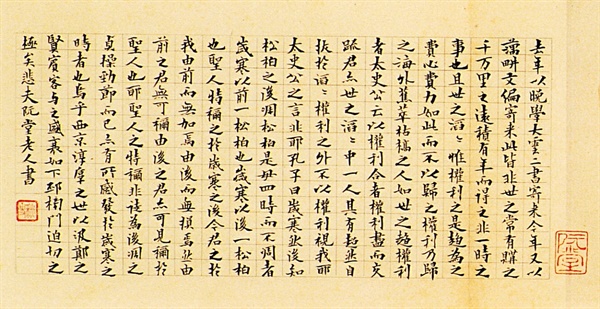 阮堂
去年以晩學大雲二書寄來今年又以
藕畊文編寄來此皆非世之常有購之
千万里之遠積有年而得之非一時之
事也且世之滔〻惟權利之是趨爲之
費心費力如此而不以歸之權利乃歸
之海外蕉萃枯槁之人如世之趨權利
者太史公云以權利合者權利盡而交
踈君亦世之滔〻中一人其有超然自
拔於滔〻權利之外不以權利視我耶
太史公之言非耶孔子曰歲寒然後知
松柏之後凋松柏是毌四時而不凋者
歲寒以前一松柏也歲寒以後一松柏
也聖人特稱之於歲寒之後今君之於
我由前而無加焉由後而無損焉然由
前之君無可稱由後之君亦可見稱於
聖人也耶聖人之特稱非徒爲後凋之
貞操勁節而已亦有所感發於歲寒之
時者也烏乎西京淳厚之世以汲鄭之
賢賓客與之盛衰如下邳榜門迫切之
極矣悲夫阮堂老人書